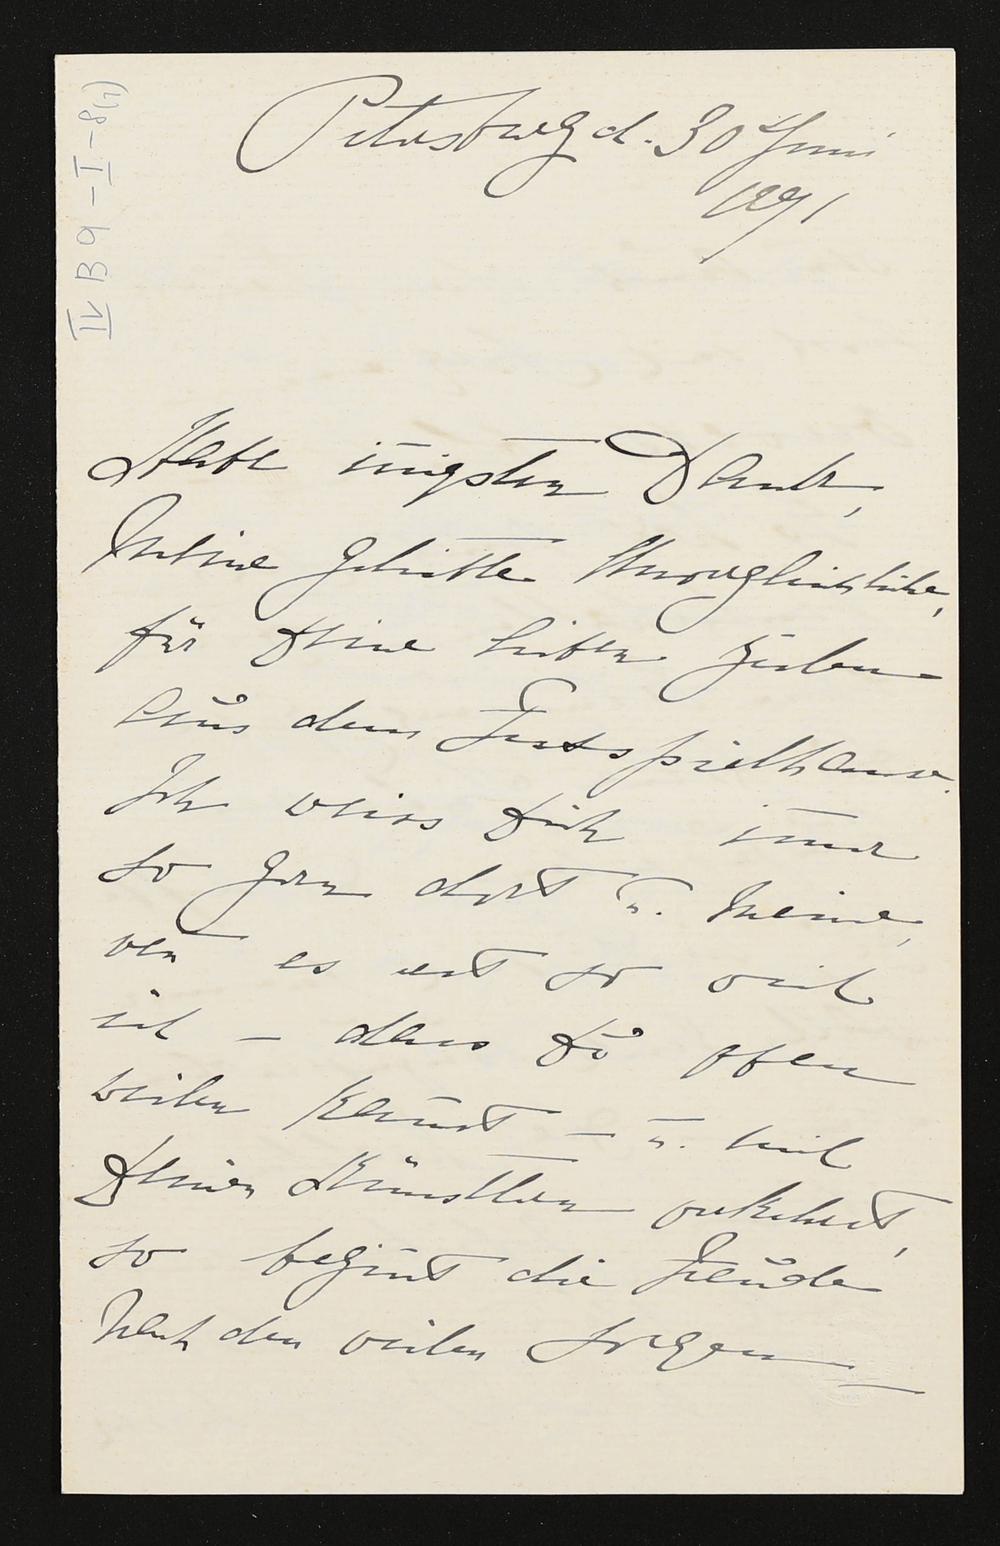 IV B 9 – I – 8 (1)
Petersburg d. 30 Juni
1891
Habe iñigsten Dank,
Meine geliebte Unvergleichliche,
für Deine lieben Zeilen
aus dem Festspielhause.
Ich weiss Dich imer
so gern dort u. meine,
weñ es erst so weit
ist – dass Du oben
weilen kañst – u. mit
Deinen Künstlern verkehrst,
so begiñt die Freude
nach den vielen Sorgen –